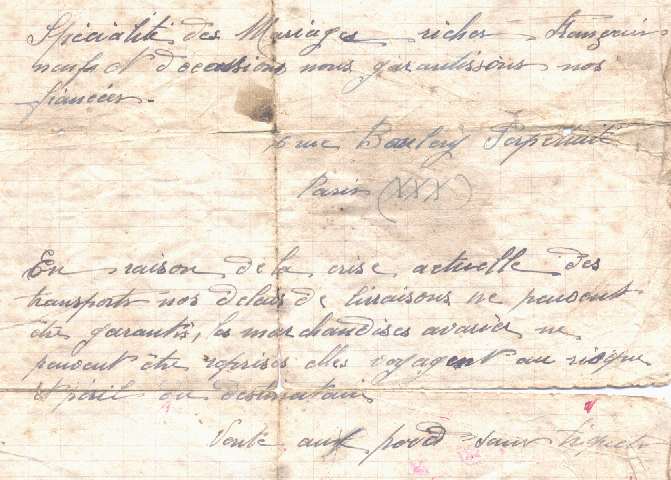 Spécialité des Mariages riches
neufs et d'occasions nous garantissons nos
fiancées.
rue
Paris (XXX)
En raison de la crise actuelle des
transports nos delais de livraisons ne peuvent
être garantis, les marchandises avariées ne
peuvent être reprises elles voyagent au risque
et péril du destinataire
Vente au poid sans